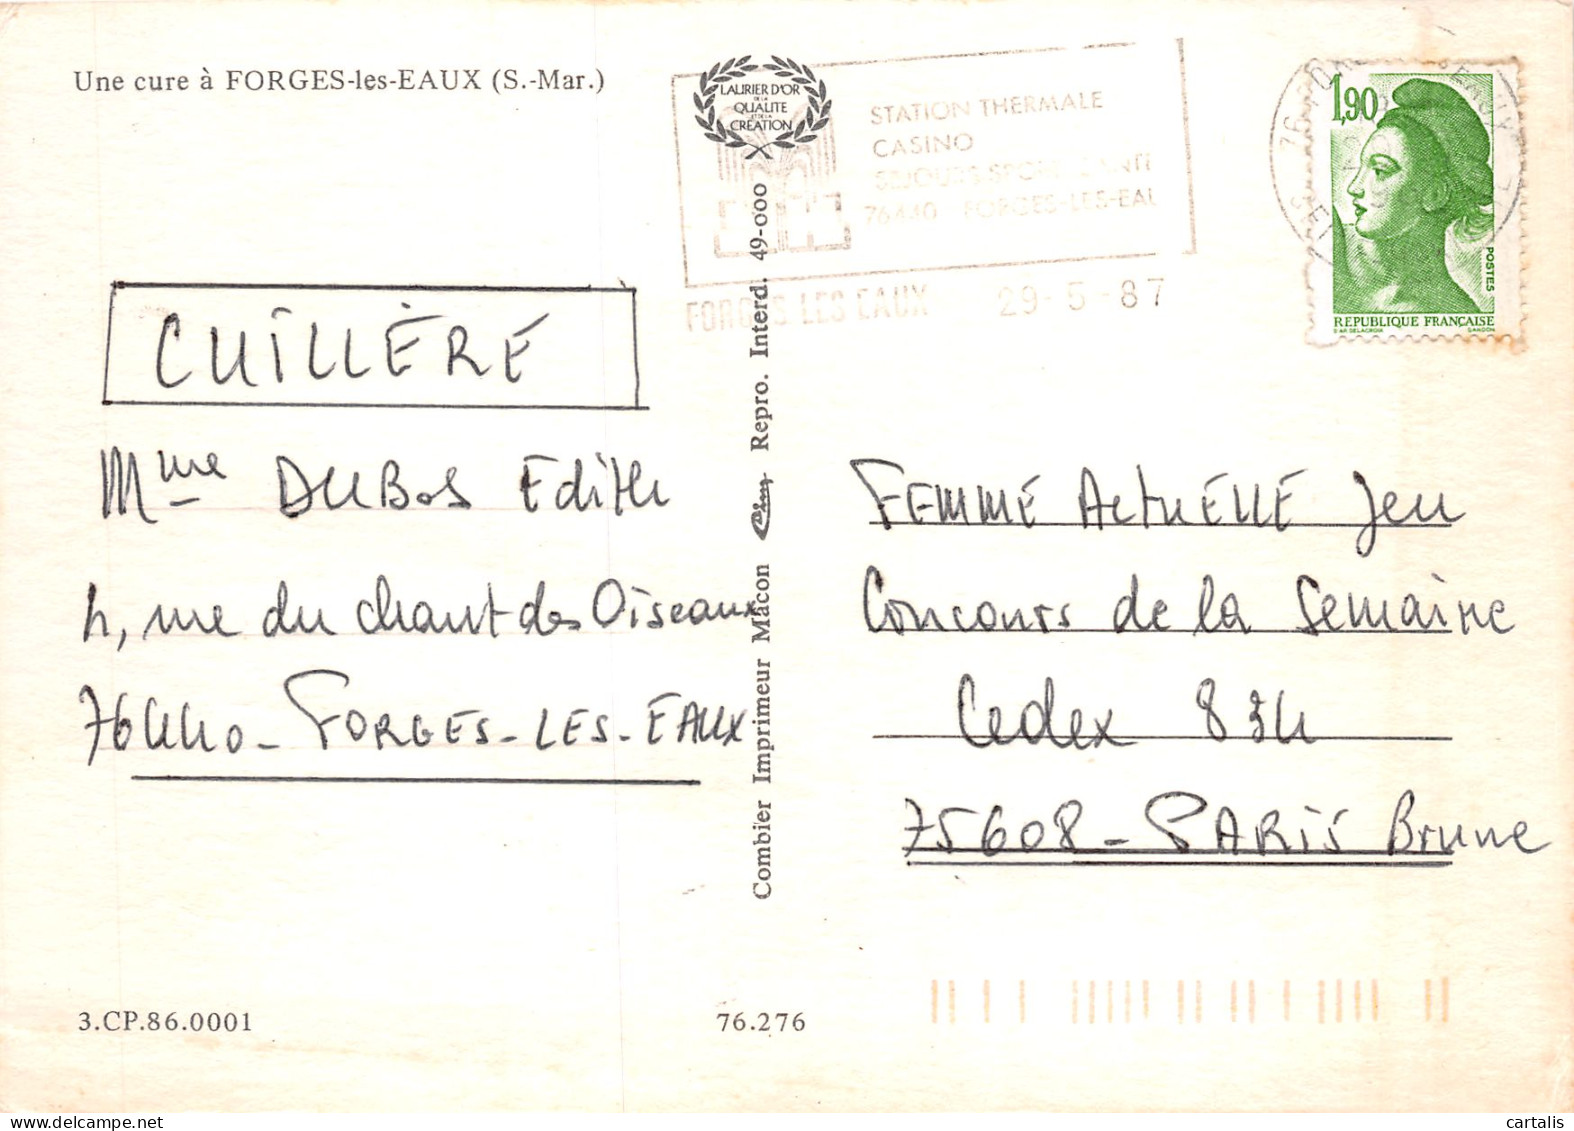 Une cure à FORGES-les-EAUX (S.-Mar.)
LAURIER D'OR
DE LA
QUALITE
ET DE LA
CREATION
STATION THERMALE
CASINO
76440 FORGES-LES-EAU
FORGES LES EAUX 29-5-87
1,90
POSTES
REPUBLIQUE FRANÇAISE
D'AP. DELACROIX GANDON
CUILLÈRE
Mme DUBOS Edith
4, rue du chant des Oiseaux
76440 - FORGES-LES-EAUX
Combier Imprimeur Mâcon Repro. Interd. 49-000
FEMME ACTUELLE Jeu
Concours de la Semaine
Cedex 834
75608 - PARIS Brune
3.CP.86.0001
76.276
delcampe.net
cartalis